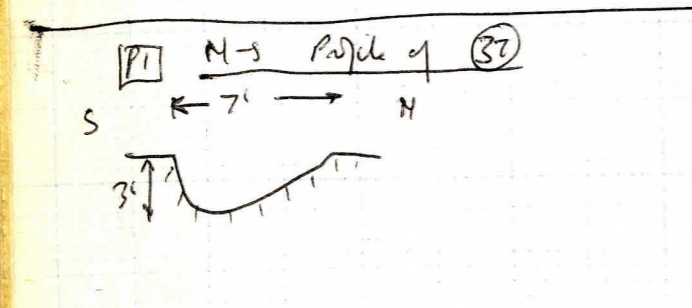 P1 N-S Profile of 32
← 7' →
S N
3'